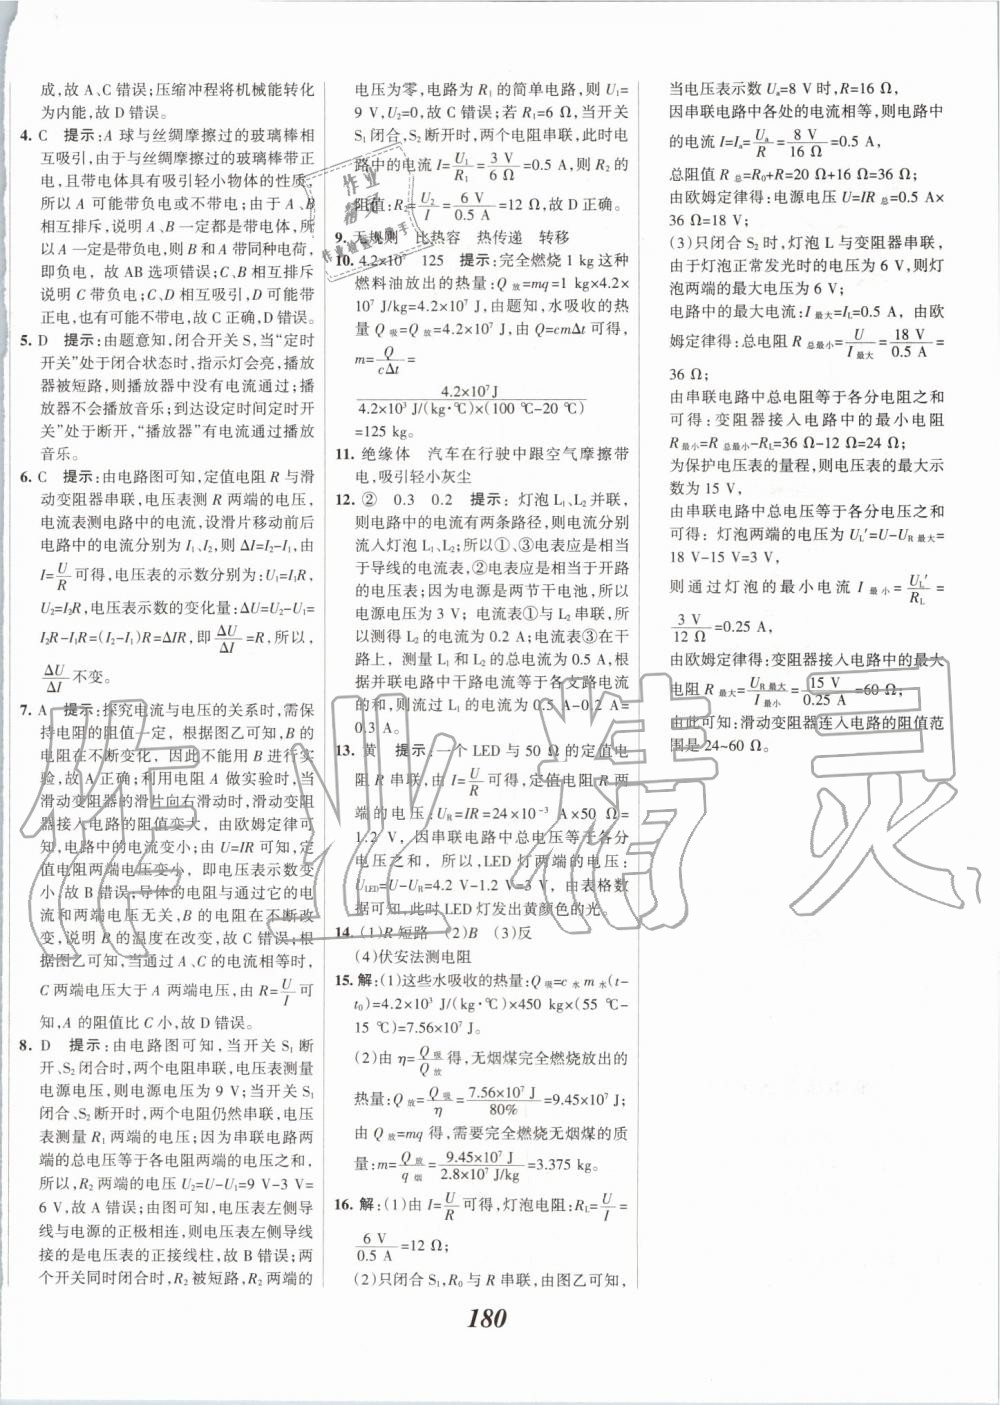 成,故 A、C 错误;压缩冲程将机械能转化
为内能,故 D 错误。
4. C 提示:A 球与丝绸摩擦过的玻璃棒相
互吸引,由于与丝绸摩擦过的玻璃棒带正
电,且带电体具有吸引轻小物体的性质,
所以 A 可能带负电或不带电;由于 A、B
相互排斥,说明 A、B 一定带电,则 B 带负电,
即负电,故 AB 选项错误;C、B 相互排斥
说明 C 带负电;D、C 相互吸引,D 可能带
正电,也有可能不带电,故 C 正确,D 错误。
5. D 提示:由题意知,闭合开关 S,当“定时
开关”处于闭合状态时,指示灯会亮,播放
器被短路,则播放器中没有电流通过;播
放器不会播放音乐;到达设定时间定时开
关处于断开,“播放器”有电流通过播放
音乐。
6. C 提示:由电路图可知,定值电阻 R 与滑
动变阻器串联,电压表测 R 两端的电压,
电流表测电路中的电流,设滑片移动前后
电路中的电流分别为 I₁、I₂,则 ΔI=I₂-I₁,由
I=U/R 可得,电压表的示数分别为:U₁=I₁R,
U₂=I₂R,电压表示数的变化量:ΔU=U₂-U₁=
I₂R-I₁R=(I₂-I₁)R=ΔIR,即ΔU/ΔI=R,所以,
ΔU/ΔI 不变。
7. A 提示:探究电流与电压的关系时,需保
持电阻的阻值一定,根据图乙可知,B 的
电阻在不断变化,因此不能用 B 进行实
验,故 A 正确;利用电阻 A 做实验时,当
滑动变阻器的滑片向右滑动时,滑动变阻
器接入电路的阻值变大,由欧姆定律可
知,电路中的电流变小;由 U=IR 可知,定
值电阻两端电压变小,即电压表示数变
小,故 B 错误;导体的电阻与通过它的电
流和两端电压无关,B 的电阻在不断改
变,说明 B 的温度在改变,故 C 错误;根
据图乙可知,当通过 A、C 的电流相等时,
C 两端电压大于 A 两端电压,由 R=U/I 可
知,A 的阻值比 C 小,故 D 错误。
8. D 提示:由电路图可知,当开关 S₁ 断
开、S₂ 闭合时,两个电阻串联,电压表测量
电源电压,则电源电压为 9 V;当开关 S₁
闭合、S₂ 断开时,两个电阻仍然串联,电压
表测量 R₁ 两端的电压;因为串联电路两
端的总电压等于各电阻两端的电压之和,
所以,R₂ 两端的电压 U₂=U-U₁=9 V-3 V=
6 V,故 A 错误;由图可知,电压表左侧导
线与电源的正极相连,则电压表左侧导线
接的是电压表的正接线柱,故 B 错误;两
个开关同时闭合时,R₂ 被短路,R₂ 两端的
电压为零,电路为 R₁ 的简单电路,则 U₁=
9 V,U₂=0,故 C 错误;若 R₁=6 Ω,当开关
S₁ 闭合、S₂ 断开时,两个电阻串联,此时电
路中的电流 I=U₁/R₁=3 V/6 Ω=0.5 A,则 R₂ 的
阻值:R₂=U₂/I=6 V/0.5 A=12 Ω,故 D 正确。
9. 无规则 比热容 热传递 转移
10. 4.2×10⁷ 125 提示:完全燃烧 1 kg 这种
燃料油放出的热量:Q放=mq=1 kg×4.2×
10⁷ J/kg=4.2×10⁷ J,由题知,水吸收的热
量 Q吸=Q放=4.2×10⁷ J,由 Q=cmΔt 可得,
m=Q/cΔt=
4.2×10⁷ J/4.2×10³ J/(kg·℃)×(100 ℃-20 ℃)
=125 kg。
11. 绝缘体 汽车在行驶中跟空气摩擦带
电,吸引轻小灰尘
12. ② 0.3 0.2 提示:灯泡 L₁、L₂ 并联,
则电路中的电流有两条路径,则电流分别
流入灯泡 L₁、L₂;所以①、③电表应是相当
于导线的电流表,②电表应是相当于开路
的电压表;因为电源是两节干电池,所以
电源电压为 3 V;电流表①与 L₂ 串联,所
以测得 L₂ 的电流为 0.2 A;电流表③在干
路上,测量 L₁ 和 L₂ 的总电流为 0.5 A,根
据并联电路中干路电流等于各支路电流
的和,则流过 L₁ 的电流为 0.5 A-0.2 A=
0.3 A。
13. 黄 提示:一个 LED 与 50 Ω 的定值电
阻 R 串联,由 I=U/R 可得,定值电阻 R 两
端的电压:U_R=IR=24×10⁻³ A×50 Ω=
1.2 V,因串联电路中总电压等于各分
电压之和,所以,LED 灯两端的电压:
U_LED=U-U_R=4.2 V-1.2 V=3 V,由表格数
据可知,此时 LED 灯发出黄颜色的光。
14. (1)R 短路 (2)B (3)反
(4)伏安法测电阻
15. 解:(1)这些水吸收的热量:Q吸=c水m水(t-
t₀)=4.2×10³ J/(kg·℃)×450 kg×(55 ℃-
15 ℃)=7.56×10⁷ J。
(2)由 η=Q吸/Q放 得,无烟煤完全燃烧放出的
热量:Q放=Q吸/η=7.56×10⁷ J/80%=9.45×10⁷ J;
由 Q放=mq 得,需要完全燃烧无烟煤的质
量:m=Q放/q烟=9.45×10⁷ J/2.8×10⁷ J/kg=3.375 kg。
16. 解:(1)由 I=U/R 可得,灯泡电阻:R_L=U/I=
6 V/0.5 A=12 Ω;
(2)只闭合 S₁,R₀ 与 R 串联,由图乙可知,
当电压表示数 Uₐ=8 V 时,R=16 Ω,
因串联电路中各处的电流相等,则电路中
的电流:I=Iₐ=Uₐ/R=8 V/16 Ω=0.5 A,
总阻值 R总=R₀+R=20 Ω+16 Ω=36 Ω;
由欧姆定律得:电源电压 U=IR总=0.5 A×
36 Ω=18 V;
(3)只闭合 S₂ 时,灯泡 L 与变阻器串联,
由于灯泡正常发光时的电压为 6 V,则灯
泡两端的最大电压为 6 V;
电路中的最大电流:I最大=I_L=0.5 A,由欧
姆定律得:总电阻 R总最小=U/I最大=18 V/0.5 A=
36 Ω;
由串联电路中总电阻等于各分电阻之和
可得:变阻器接入电路中的最小电阻
R最小=R总最小-R_L=36 Ω-12 Ω=24 Ω;
为保护电压表的量程,则电压表的最大示
数为 15 V,
由串联电路中总电压等于各分电压之和
可得:灯泡两端的电压为 U_L′=U-U_R最大=
18 V-15 V=3 V,
则通过灯泡的最小电流 I最小=U_L′/R_L=
3 V/12 Ω=0.25 A,
由欧姆定律得:变阻器接入电路中的最大
电阻 R最大=U_R最大/I最小=15 V/0.25 A=60 Ω,
由此可知:滑动变阻器连入电路的阻值范
围是 24~60 Ω。
180
作业精灵